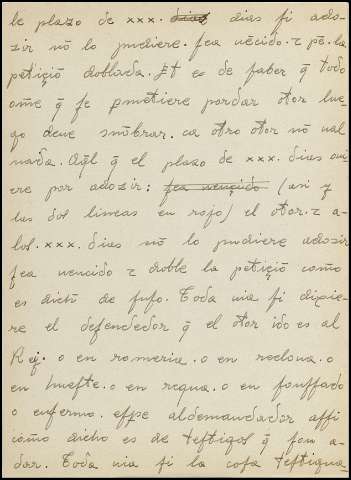 le plazo de xxx. dias dias si ado-
zir nõ lo pudiere. sea uẽcido. z pe. la
petiçiõ doblada. Et es de saber q̃ todo
ome q̃ se pmetiere pordar otor lue-
go deue nõbrar. ca otro otor nõ ual
nada. Aq̃l q̃ el plazo de xxx. dias oui-
ere por adozir: sea uençido (asi y
las dos lineas en rojo) el otor. z a-
los. xxx. dias nõ lo pudiere adozir
sea uencido z doble la petiçiõ como
es dicto de suso. Toda uia si dixie-
re el defendedor q̃ el otor ido es al
Rey. o en romeria. o en reclusa. o
en hueste. o en requa. o en fonssado
o enfermo. esse aldemandador assi
como dicho es de testigos q̃ son a-
dar. Toda uia si la cosa testigua-